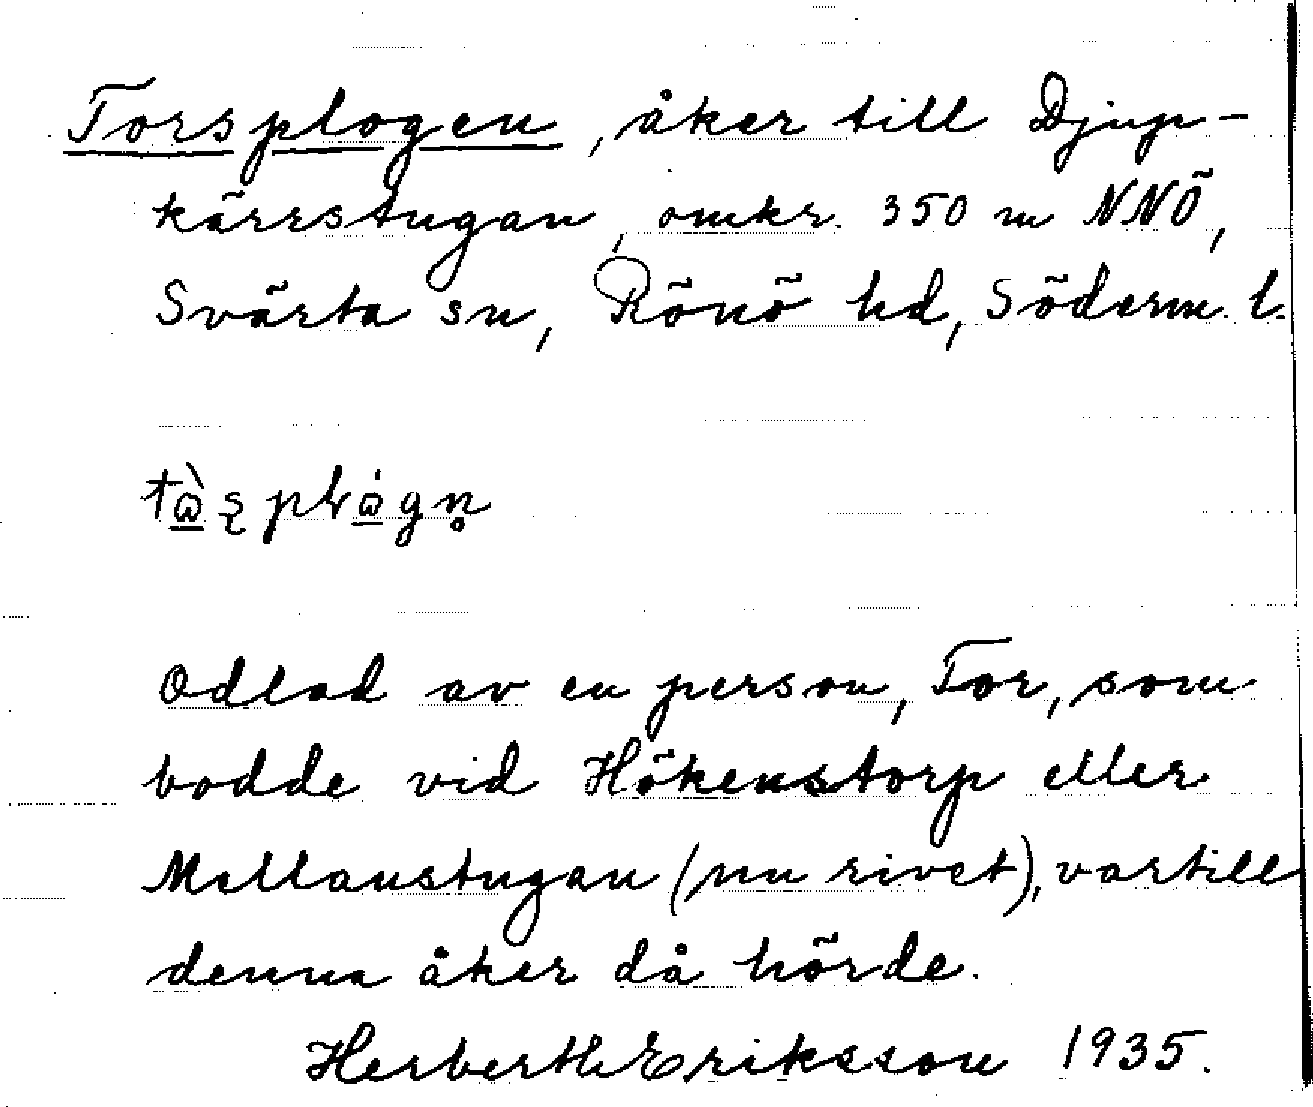 Torsplogen, åker till Djup-
kärrstugan, omkr. 350 m NNÖ,
Svärta sn, Rönö hd, Söderm. l.
Odlad av en person, Tor, som
bodde vid Hökenstorp eller
Mellanstugan (nu rivet), vartill
denna åker då hörde.
Herberth Eriksson 1935.